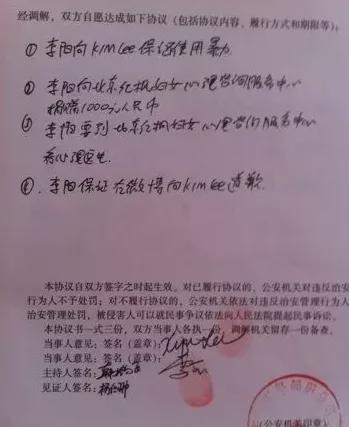 经调解，双方自愿达成如下协议（包括协议内容、履行方式和期限等）：
① 李阳向KIM Lee 保证使用暴力
② 李阳向北京红枫妇女心理咨询服务中心
捐赠1000元人民币
③ 李阳要到北京红枫妇女心理咨询服务中心
看心理医生.
④. 李阳保证在微博向KIM Lee 道歉.
本协议自双方签字之时起生效。对已履行协议的，公安机关对违反治安
行为人不予处罚；对不履行协议的，公安机关依法对违反治安管理行为人
治安管理处罚，被侵害人可以就民事争议依法向人民法院提起民事诉讼。
本协议书一式三份，双方当事人各执一份，调解机关留存一份备查。
当事人意见：签名（盖章）：
当事人意见：签名（盖章）：
主持人签名：
见证人签名：
（公安机关印章）